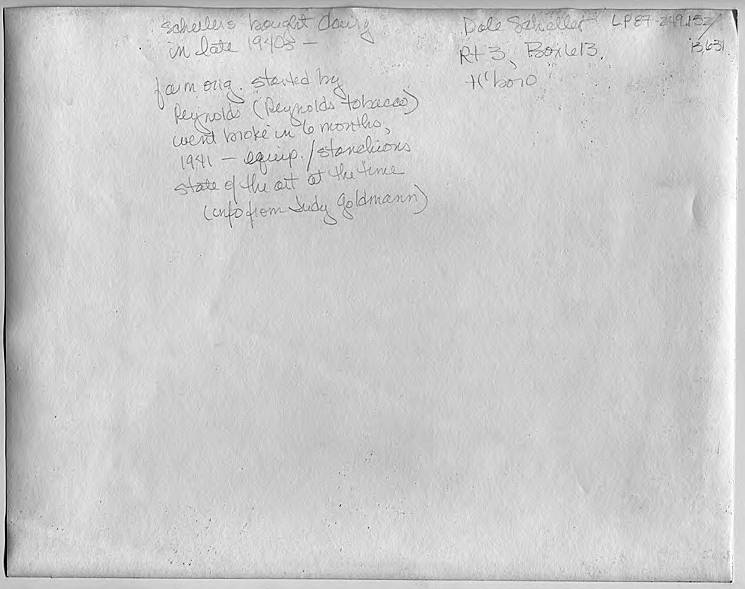 Schellers bought dairy
in late 1940s —
farm orig. started by
Reynolds (Reynolds tobacco)
went broke in 6 months,
1941 — equip./stanchions
state of the art at the time
(info from Judy Goldmann)
Dale Scheller
Rt 3, Box 613,
H'boro
LP87-249.132/
13,631